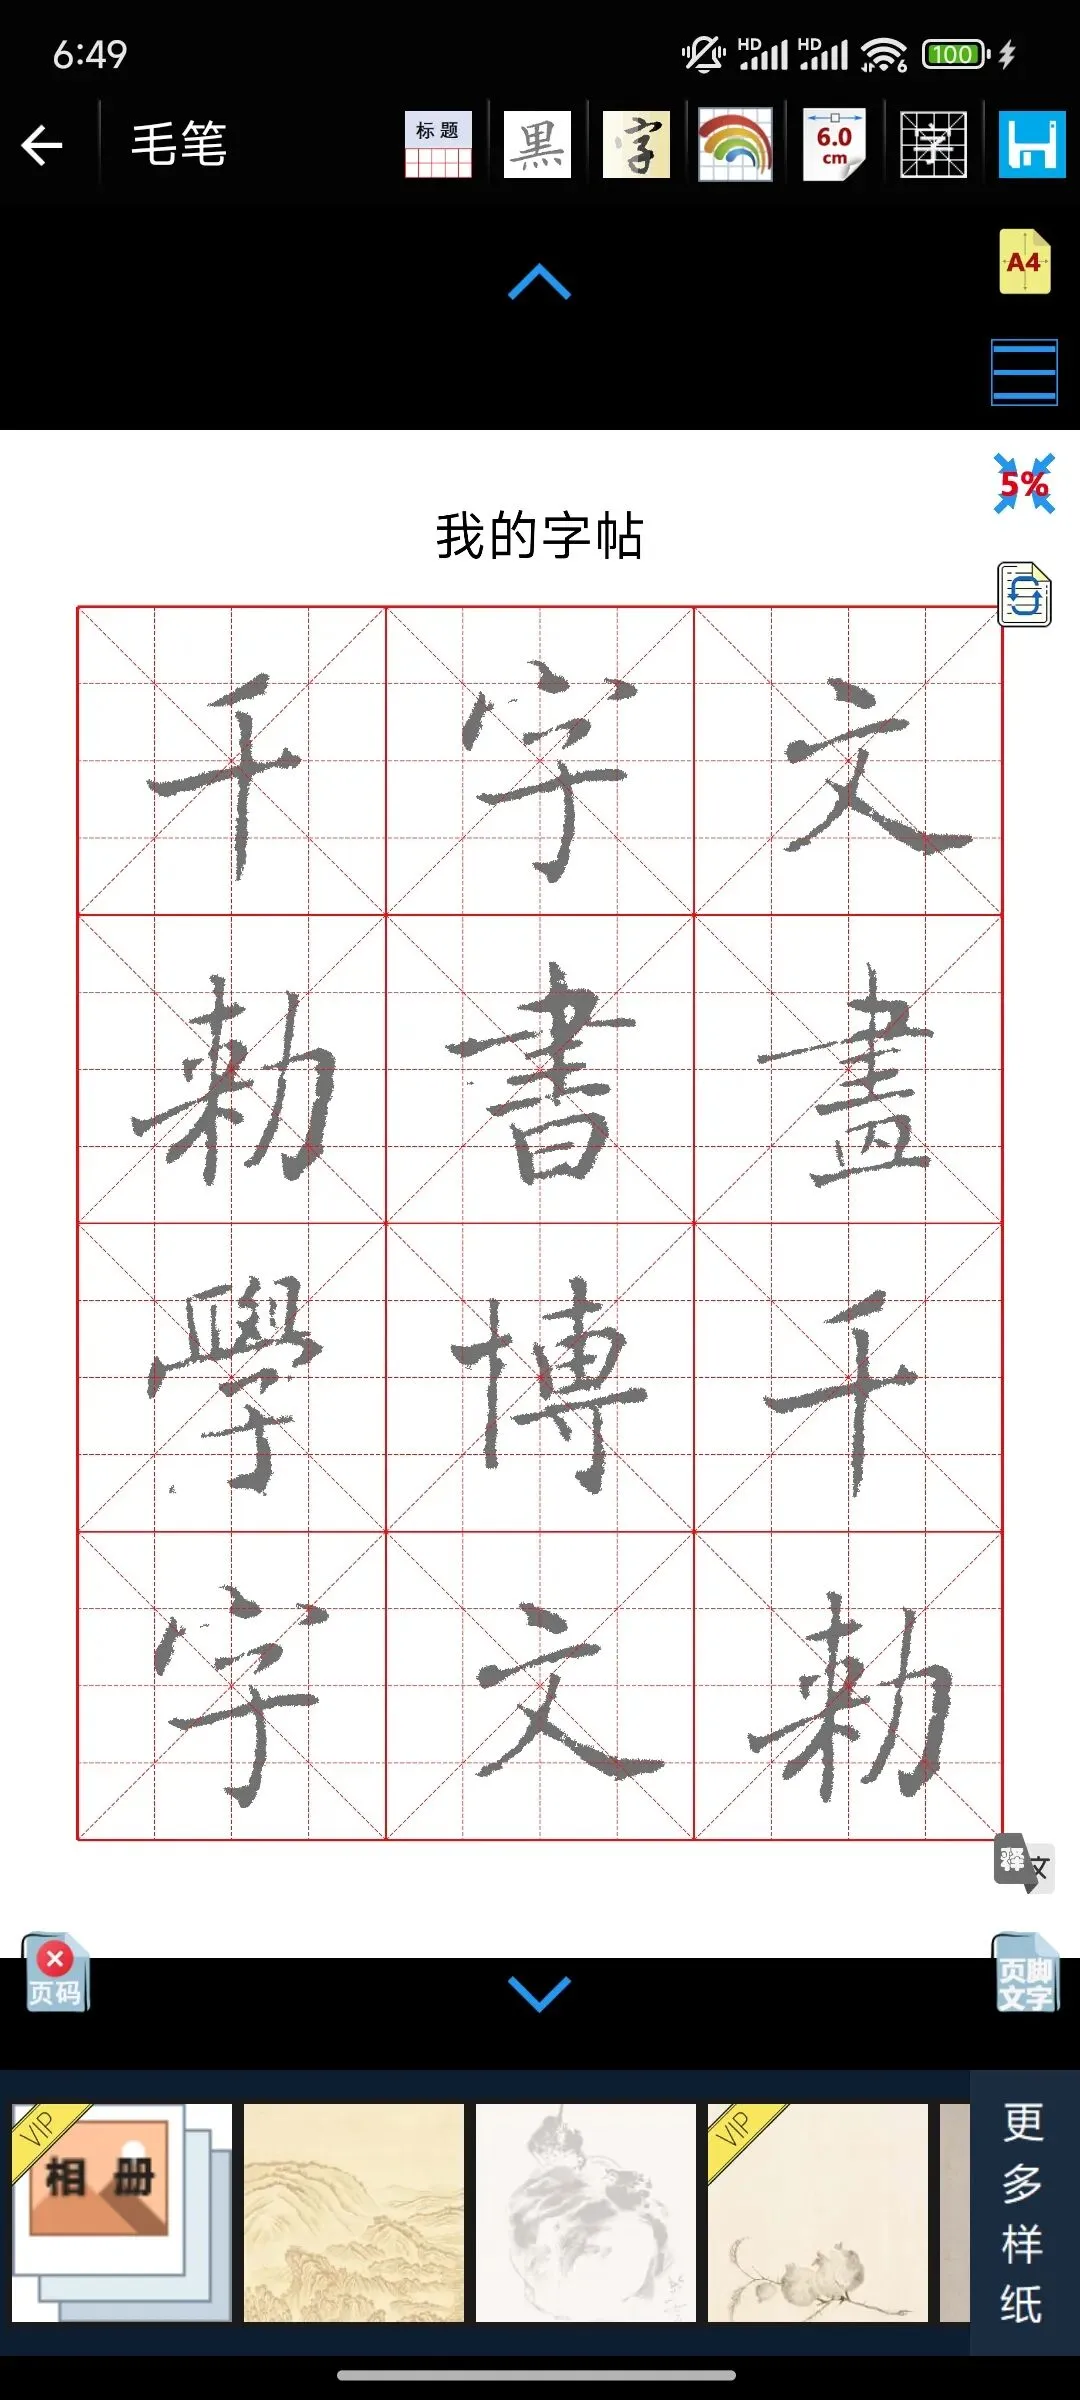 6:49
HD HD 6 100
毛笔
标题 黑 字 6.0 cm 字
A4
5%
我的字帖
千字文
勑書畫
學博千
字文勑
释文
页码
页脚文字
VIP
相册
VIP
更多样纸